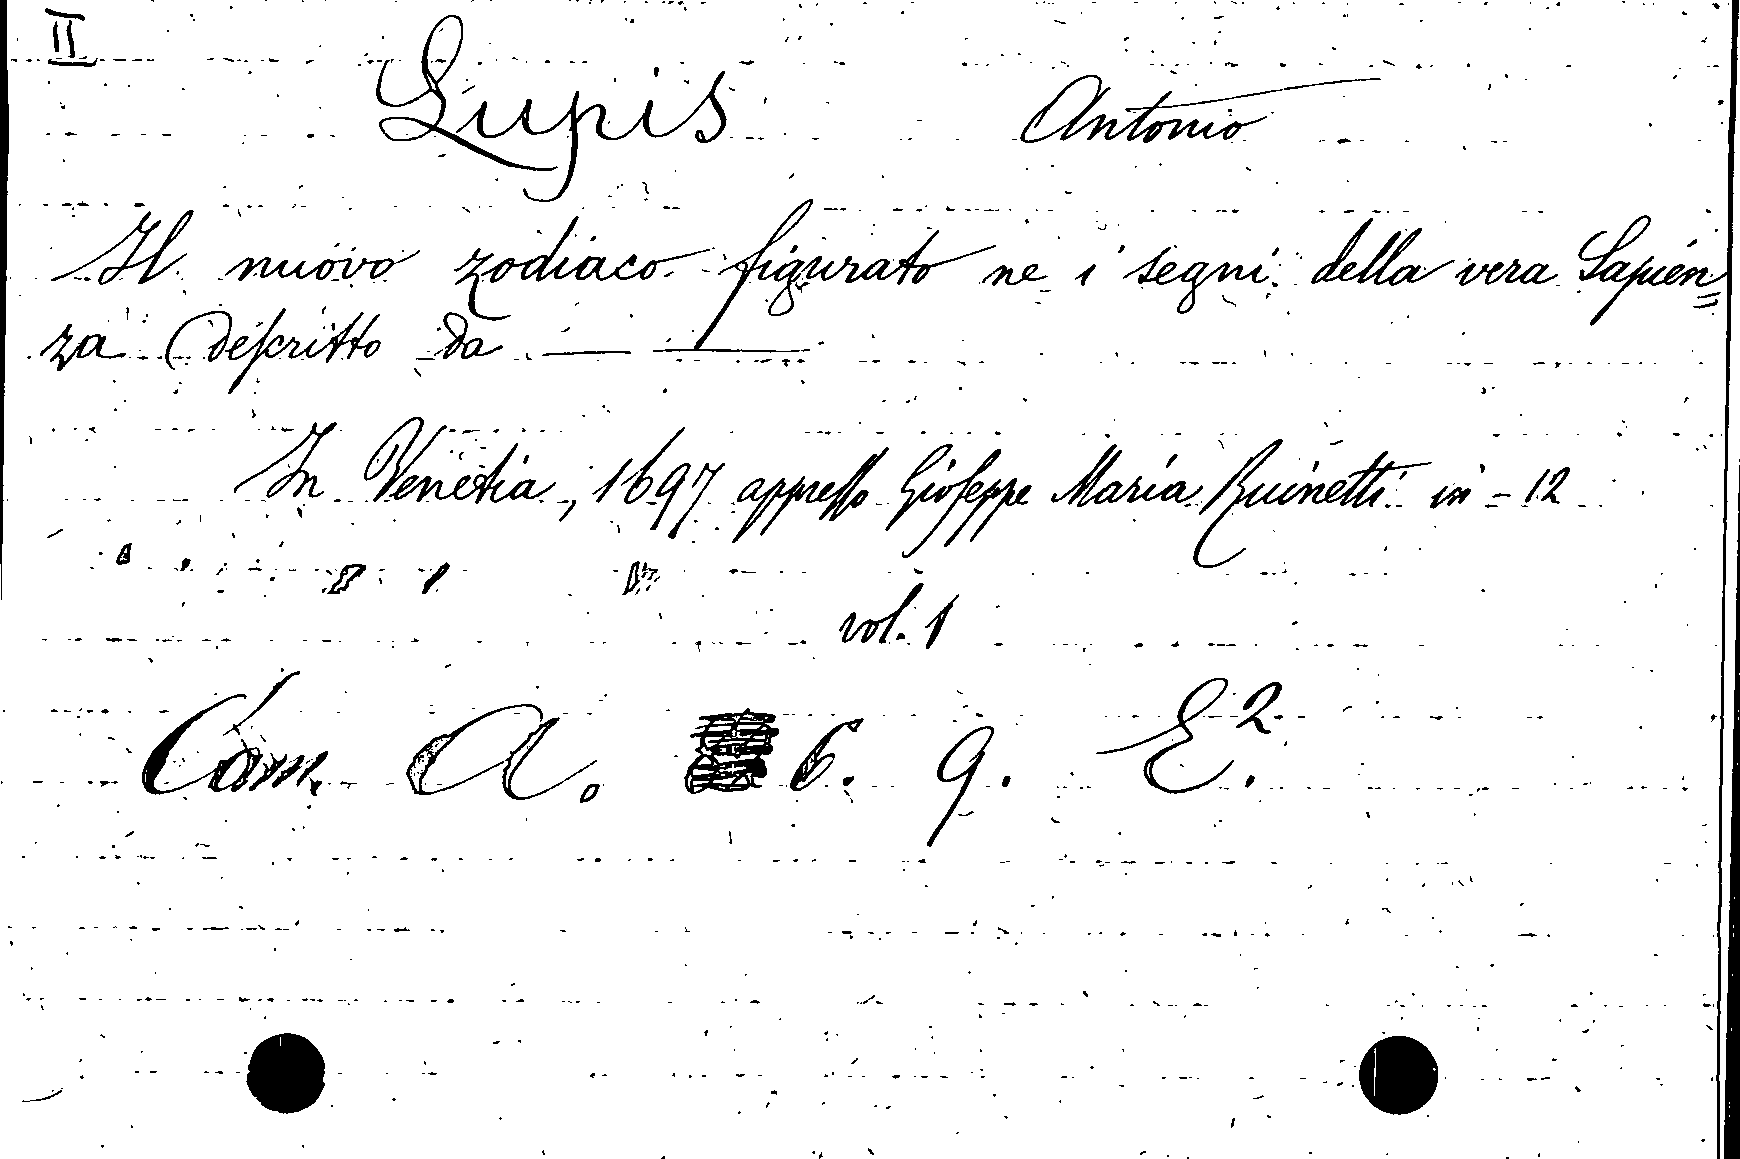 II
Lupis Antonio
Il nuovo zodiaco figurato ne i segni della vera Sapien=
za descritto da — —
In Venetia, 1697 appresso Gioseppe Maria Ruinetti in-12
vol. 1
Cam. A. 6. 9. E².